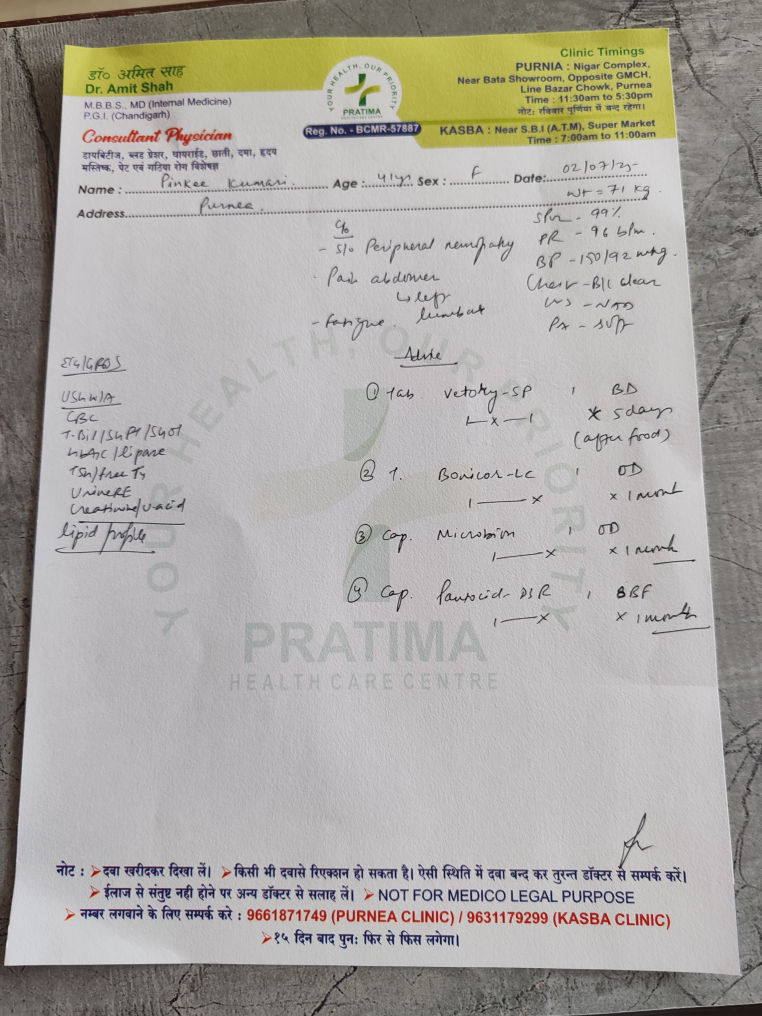 डॉ० अमित साह
Dr. Amit Shah
M.B.B.S., MD (Internal Medicine)
P.G.I. (Chandigarh)
Consultant Physician
डायबिटीज, ब्लड प्रेशर, थायराईड, छाती, दमा, हृदय
मस्तिष्क, पेट एवं गठिया रोग विशेषज्ञ
YOUR HEALTH, OUR PRIORITY
PRATIMA
HEALTH CARE CENTRE
Reg. No. - BCMR-57887
Clinic Timings
PURNIA : Nigar Complex,
Near Bata Showroom, Opposite GMCH,
Line Bazar Chowk, Purnea
Time : 11:30am to 5:30pm
नोट: रविवार पूर्णिया में बन्द रहेगा।
KASBA : Near S.B.I (A.T.M), Super Market
Time : 7:00am to 11:00am
Name : Pinkee Kumari Age : 41yr Sex : F Date: 02/07/25
Address Purnea
wt = 71 kg.
c/o
- S/o Peripheral neuropathy
- Pain abdomen
↳ left
lumbar
- Fatigue
SPO2 - 99%
PR - 96 bpm.
BP - 150/92 mmhg.
Chest - B/L clear
- NAD
PA - soft
ECG/GRBS
USG W/A
CBC
T.Bil/SGPT/SGOT
HbA1C/lipase
TSH/free T4
Urine RE
Creatinine/U.acid
lipid profile
Advice
① Tab. Vetory-SP , BD
1-x-1 x 5 days
(after food)
② T. Bonicor-LC , OD
1——x x 1 month
③ Cap. , OD
1——x x 1 month
④ Cap. Pantocid-DSR , BBF
1——x x 1 month
YOUR HEALTH, OUR PRIORITY
PRATIMA
HEALTH CARE CENTRE
नोट : ➢दवा खरीदकर दिखा लें। ➢किसी भी दवासे रिएक्शन हो सकता है। ऐसी स्थिति में दवा बन्द कर तुरन्त डॉक्टर से सम्पर्क करें।
➢ईलाज से संतुष्ट नही होने पर अन्य डॉक्टर से सलाह लें। ➢NOT FOR MEDICO LEGAL PURPOSE
➢नम्बर लगवाने के लिए सम्पर्क करे : 9661871749 (PURNEA CLINIC) / 9631179299 (KASBA CLINIC)
➢१५ दिन बाद पुनः फिर से फिस लगेगा।